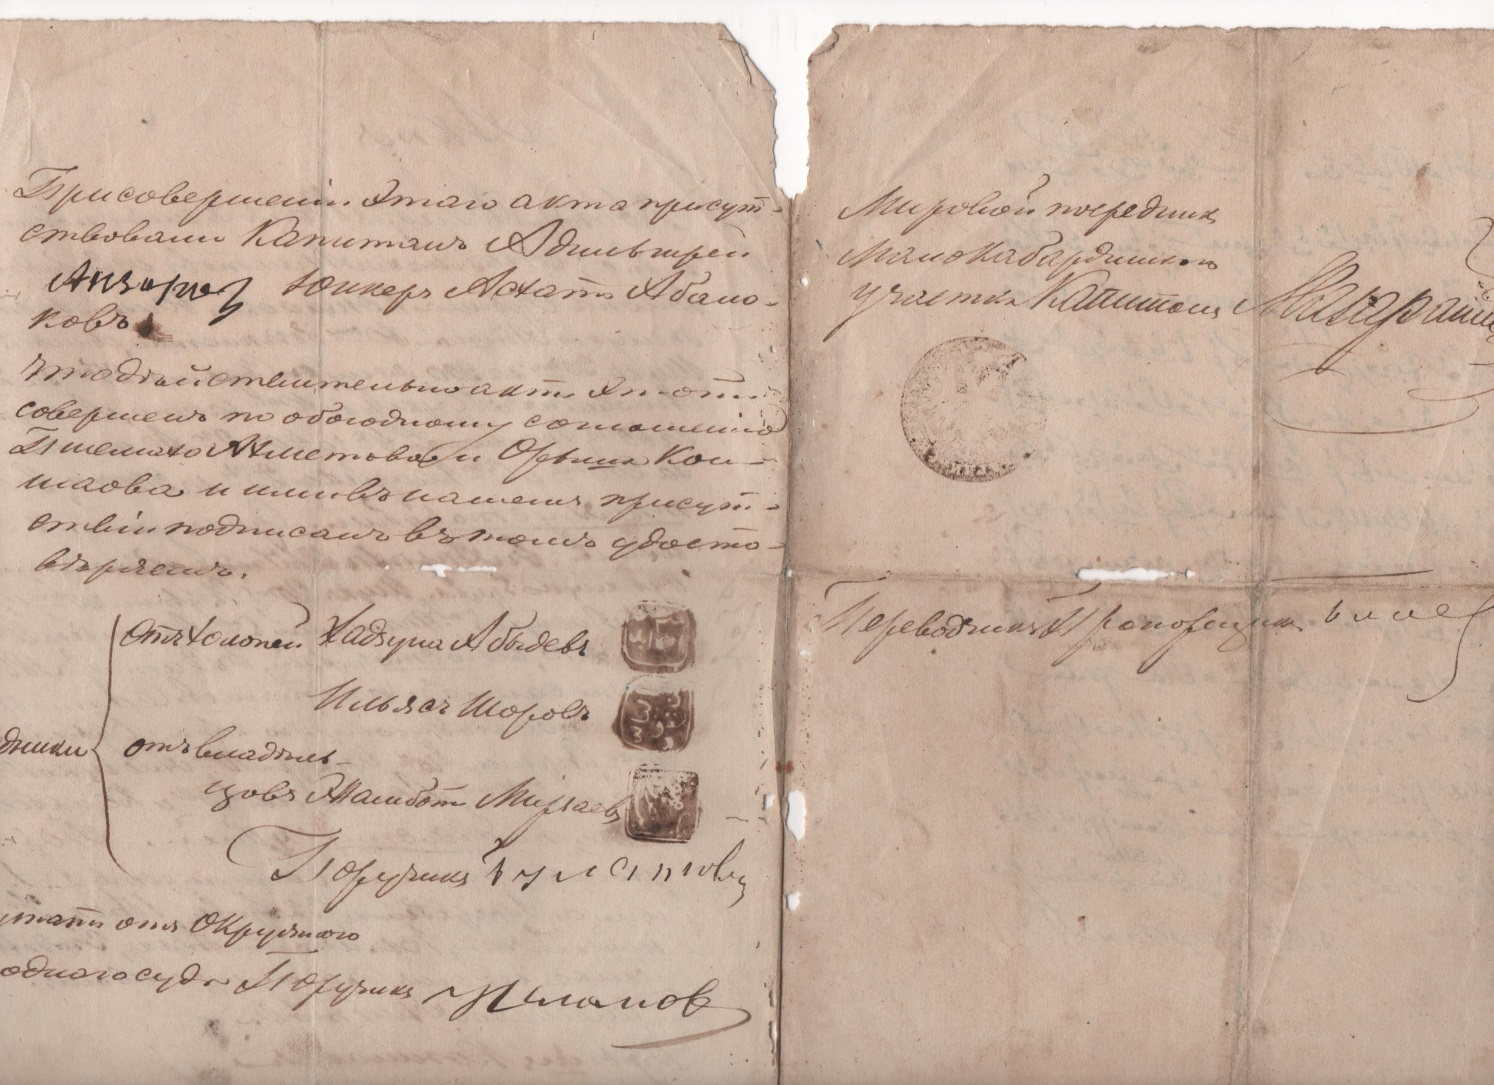 При совершеніи этого акта присут-
ствовали Капитанъ Адильгирей
Анзоровъ Юнкеръ Асхатъ Абало-
ковъ
что действительно актъ этотъ
совершенъ по обоюдному соглашенію
Пшемахо Ахметова и Кон-
шаова и ими въ нашемъ присут-
ствіи подписанъ въ томъ удосто-
вѣряемъ.
отъ холопей Хадзула Абыдевъ
Ильясъ Шоровъ
дники отъ владѣль-
цовъ Мамботъ Мирзаевъ
Поручикъ
утатъ отъ Окружного
одного суда Поручикъ
Мировой посредникъ
Малокабардинскаго
участка Капитанъ
Переводчикъ Прапорщикъ